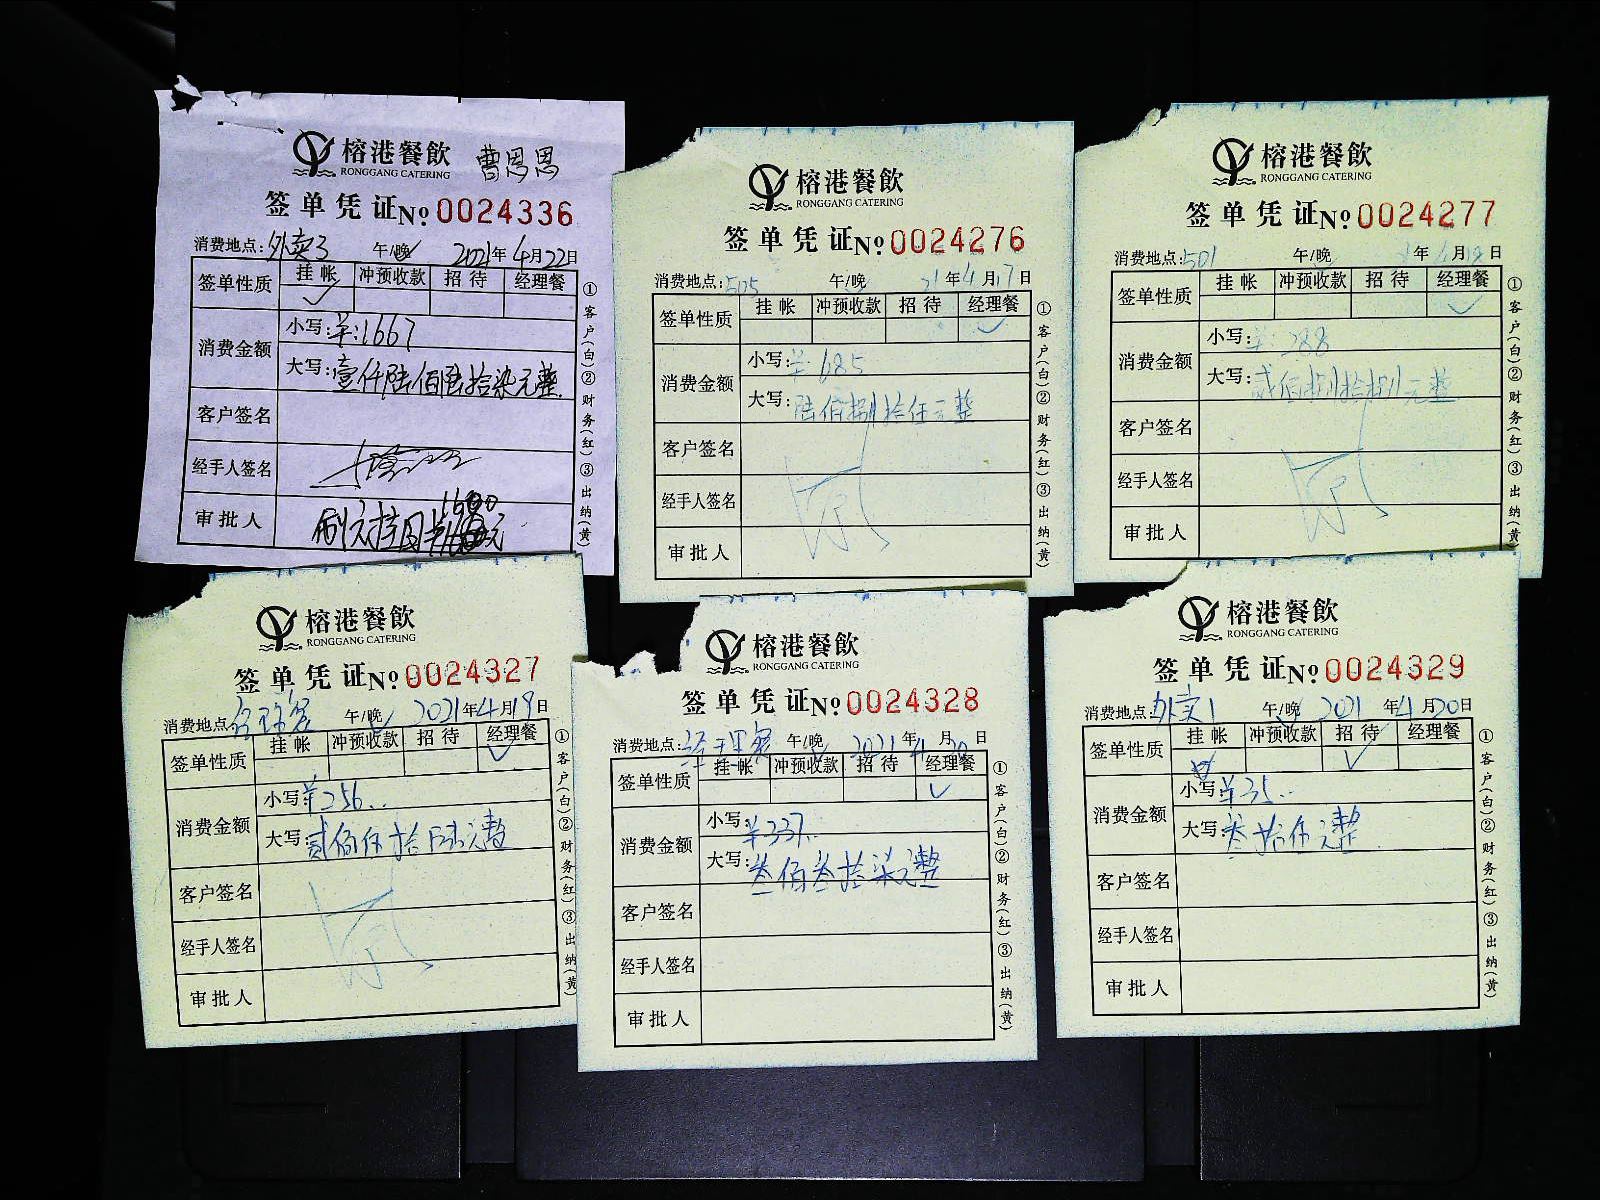 榕港餐飲 曹恩恩
RONGGANG CATERING
签单凭证 No 0024336
消费地点:外卖3 午/晚 2021年4月22日
签单性质 挂帐 冲预收款 招待 经理餐
✓
消费金额 小写:¥:1667
大写:壹仟陆佰陆拾柒元整
客户签名
经手人签名
审批人 1600
①客户(白)②财务(红)③出纳(黄)
榕港餐飲
RONGGANG CATERING
签单凭证 No 0024276
消费地点:505 午/晚 21年4月17日
签单性质 挂帐 冲预收款 招待 经理餐
✓
消费金额 小写:¥:685
大写:陆佰捌拾伍元整
客户签名
经手人签名
审批人
①客户(白)②财务(红)③出纳(黄)
榕港餐飲
RONGGANG CATERING
签单凭证 No 0024277
消费地点:501 午/晚 年4月 日
签单性质 挂帐 冲预收款 招待 经理餐
✓
消费金额 小写:¥:288
大写:贰佰捌拾捌元整
客户签名
经手人签名
审批人
①客户(白)②财务(红)③出纳(黄)
榕港餐飲
RONGGANG CATERING
签单凭证 No 0024327
消费地点: 午/晚 2021年4月19日
签单性质 挂帐 冲预收款 招待 经理餐
✓
消费金额 小写:¥256..
大写:贰佰伍拾陆元整
客户签名
经手人签名
审批人
①客户(白)②财务(红)③出纳(黄)
榕港餐飲
RONGGANG CATERING
签单凭证 No 0024328
消费地点:经理餐 午/晚 2021年4月20日
签单性质 挂帐 冲预收款 招待 经理餐
✓
消费金额 小写:¥337..
大写:叁佰叁拾柒元整
客户签名
经手人签名
审批人
①客户(白)②财务(红)③出纳(黄)
榕港餐飲
RONGGANG CATERING
签单凭证 No 0024329
消费地点:外卖1 午/晚 2021年4月20日
签单性质 挂帐 冲预收款 招待 经理餐
✓
消费金额 小写:¥35..
大写:叁拾伍元整
客户签名
经手人签名
审批人
①客户(白)②财务(红)③出纳(黄)